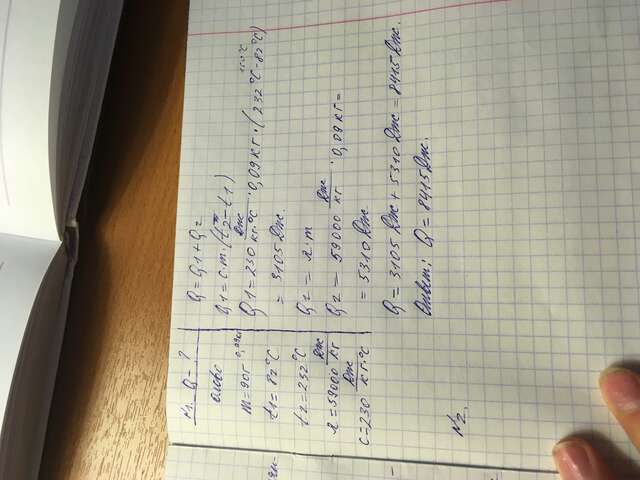 №1 Q - ?
олово
m = 90г 0,09кг
t1 = 82°C
t2 = 232°C
λ = 59000 Дж/кг
c = 230 Дж/кг·°C
Q = Q1 + Q2
Q1 = cm(t2 - t1)
Q1 = 230 Дж/кг·°C · 0,09кг · (232°C - 82°C)
150°C
= 3105 Дж.
Q2 = λ · m
Q2 = 59000 Дж/кг · 0,09кг =
= 5310 Дж.
Q = 3105 Дж + 5310 Дж = 8415 Дж.
Ответ: Q = 8415 Дж.
№2.